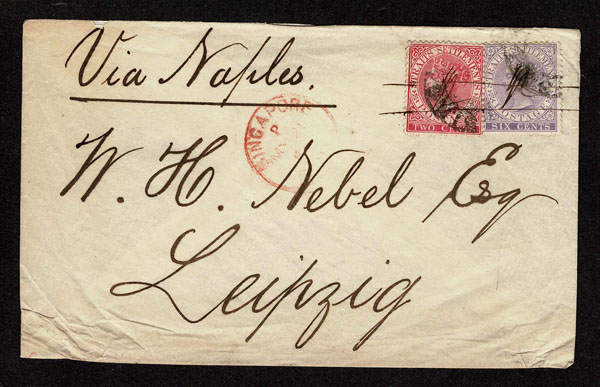 Via Naples.
STRAITS SETTLEMENTS
POSTAGE
TWO CENTS
STRAITS SETTLEMENTS
POSTAGE
SIX CENTS
SINGAPORE
P
W. H. Nebel Esq
Leipzig